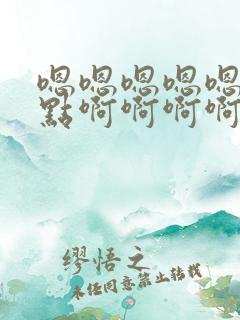 嗯嗯嗯嗯嗯
點啊啊啊啊
缪悟之
未经同意禁止转载